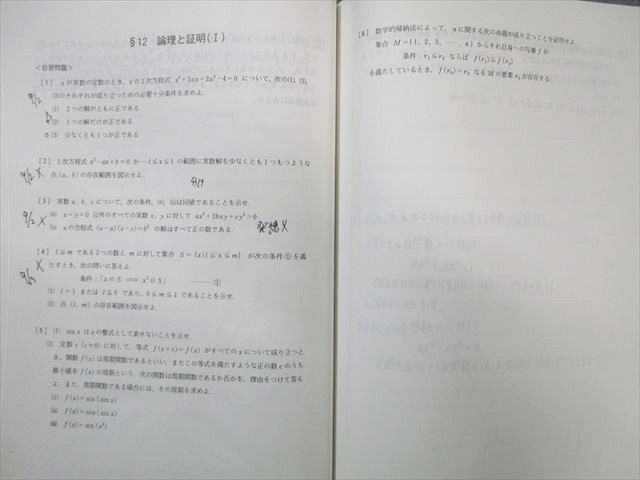 §12 論理と証明(Ⅰ)
<自習問題>
〔1〕 aが実数の定数のとき，xの2次方程式 x²+2ax+2a²-4=0 について，次の(1), (2),
(3)のそれぞれが成り立つための必要十分条件を求めよ．
9/2
(1) 2つの解がともに正である．
(2) 1つの解だけが正である．
(3) 少なくとも1つが正である．
〔2〕 2次方程式 x²-ax+b=0 が -1≦x≦1 の範囲に実数解を少なくとも1つもつような
9/2 X
点(a, b)の存在範囲を図示せよ．
〔3〕 実数 a, b, c について，次の条件, (a), (b)は同値であることを示せ．
9/2 X
(a) x=y=0 以外のすべての実数 x, y に対して ax²+2bxy+cy²>0
(b) xの方程式 (x-a)(x-c)=b² の解はすべて正の数である．
発想X
〔4〕 l≦m である2つの数 l, m に対して集合 S={x|l≦x≦m} が次の条件①を満
X
たすとき，次の問いに答えよ．
9/5
条件：「x∈S ⟹ x²∈S」 ………①
(1) l=1 または l≦0 であり，0≦m≦1 であることを示せ．
(2) 点(l, m)の存在範囲を図示せよ．
〔5〕 (1) sin x はxの整式として表せないことを示せ．
(2) 定数 c(c≠0)に対して，等式 f(x+c)=f(x) がすべてのxについて成り立つと
き，関数 f(x) は周期関数であるといい，またこの等式を満たすような正の数cのうち
最小値を f(x) の周期という．次の関数は周期関数であるか否かを，理由をつけて答え
よ．また，周期関数である場合には，その周期を求めよ．
(i) f(x)=sin(sin x)
(ii) f(x)=cos(sin x)
(iii) f(x)=sin(x³)
〔6〕 数学的帰納法によって，nに関する次の命題が成り立つことを証明せよ．
集合 M={1, 2, 3, ……, n}からそれ自身への写像 f が
条件：r₁≦r₂ ならば f(r₁)≦f(r₂)
を満たしているとき，f(r₀)=r₀ なるMの要素 r₀ が存在する